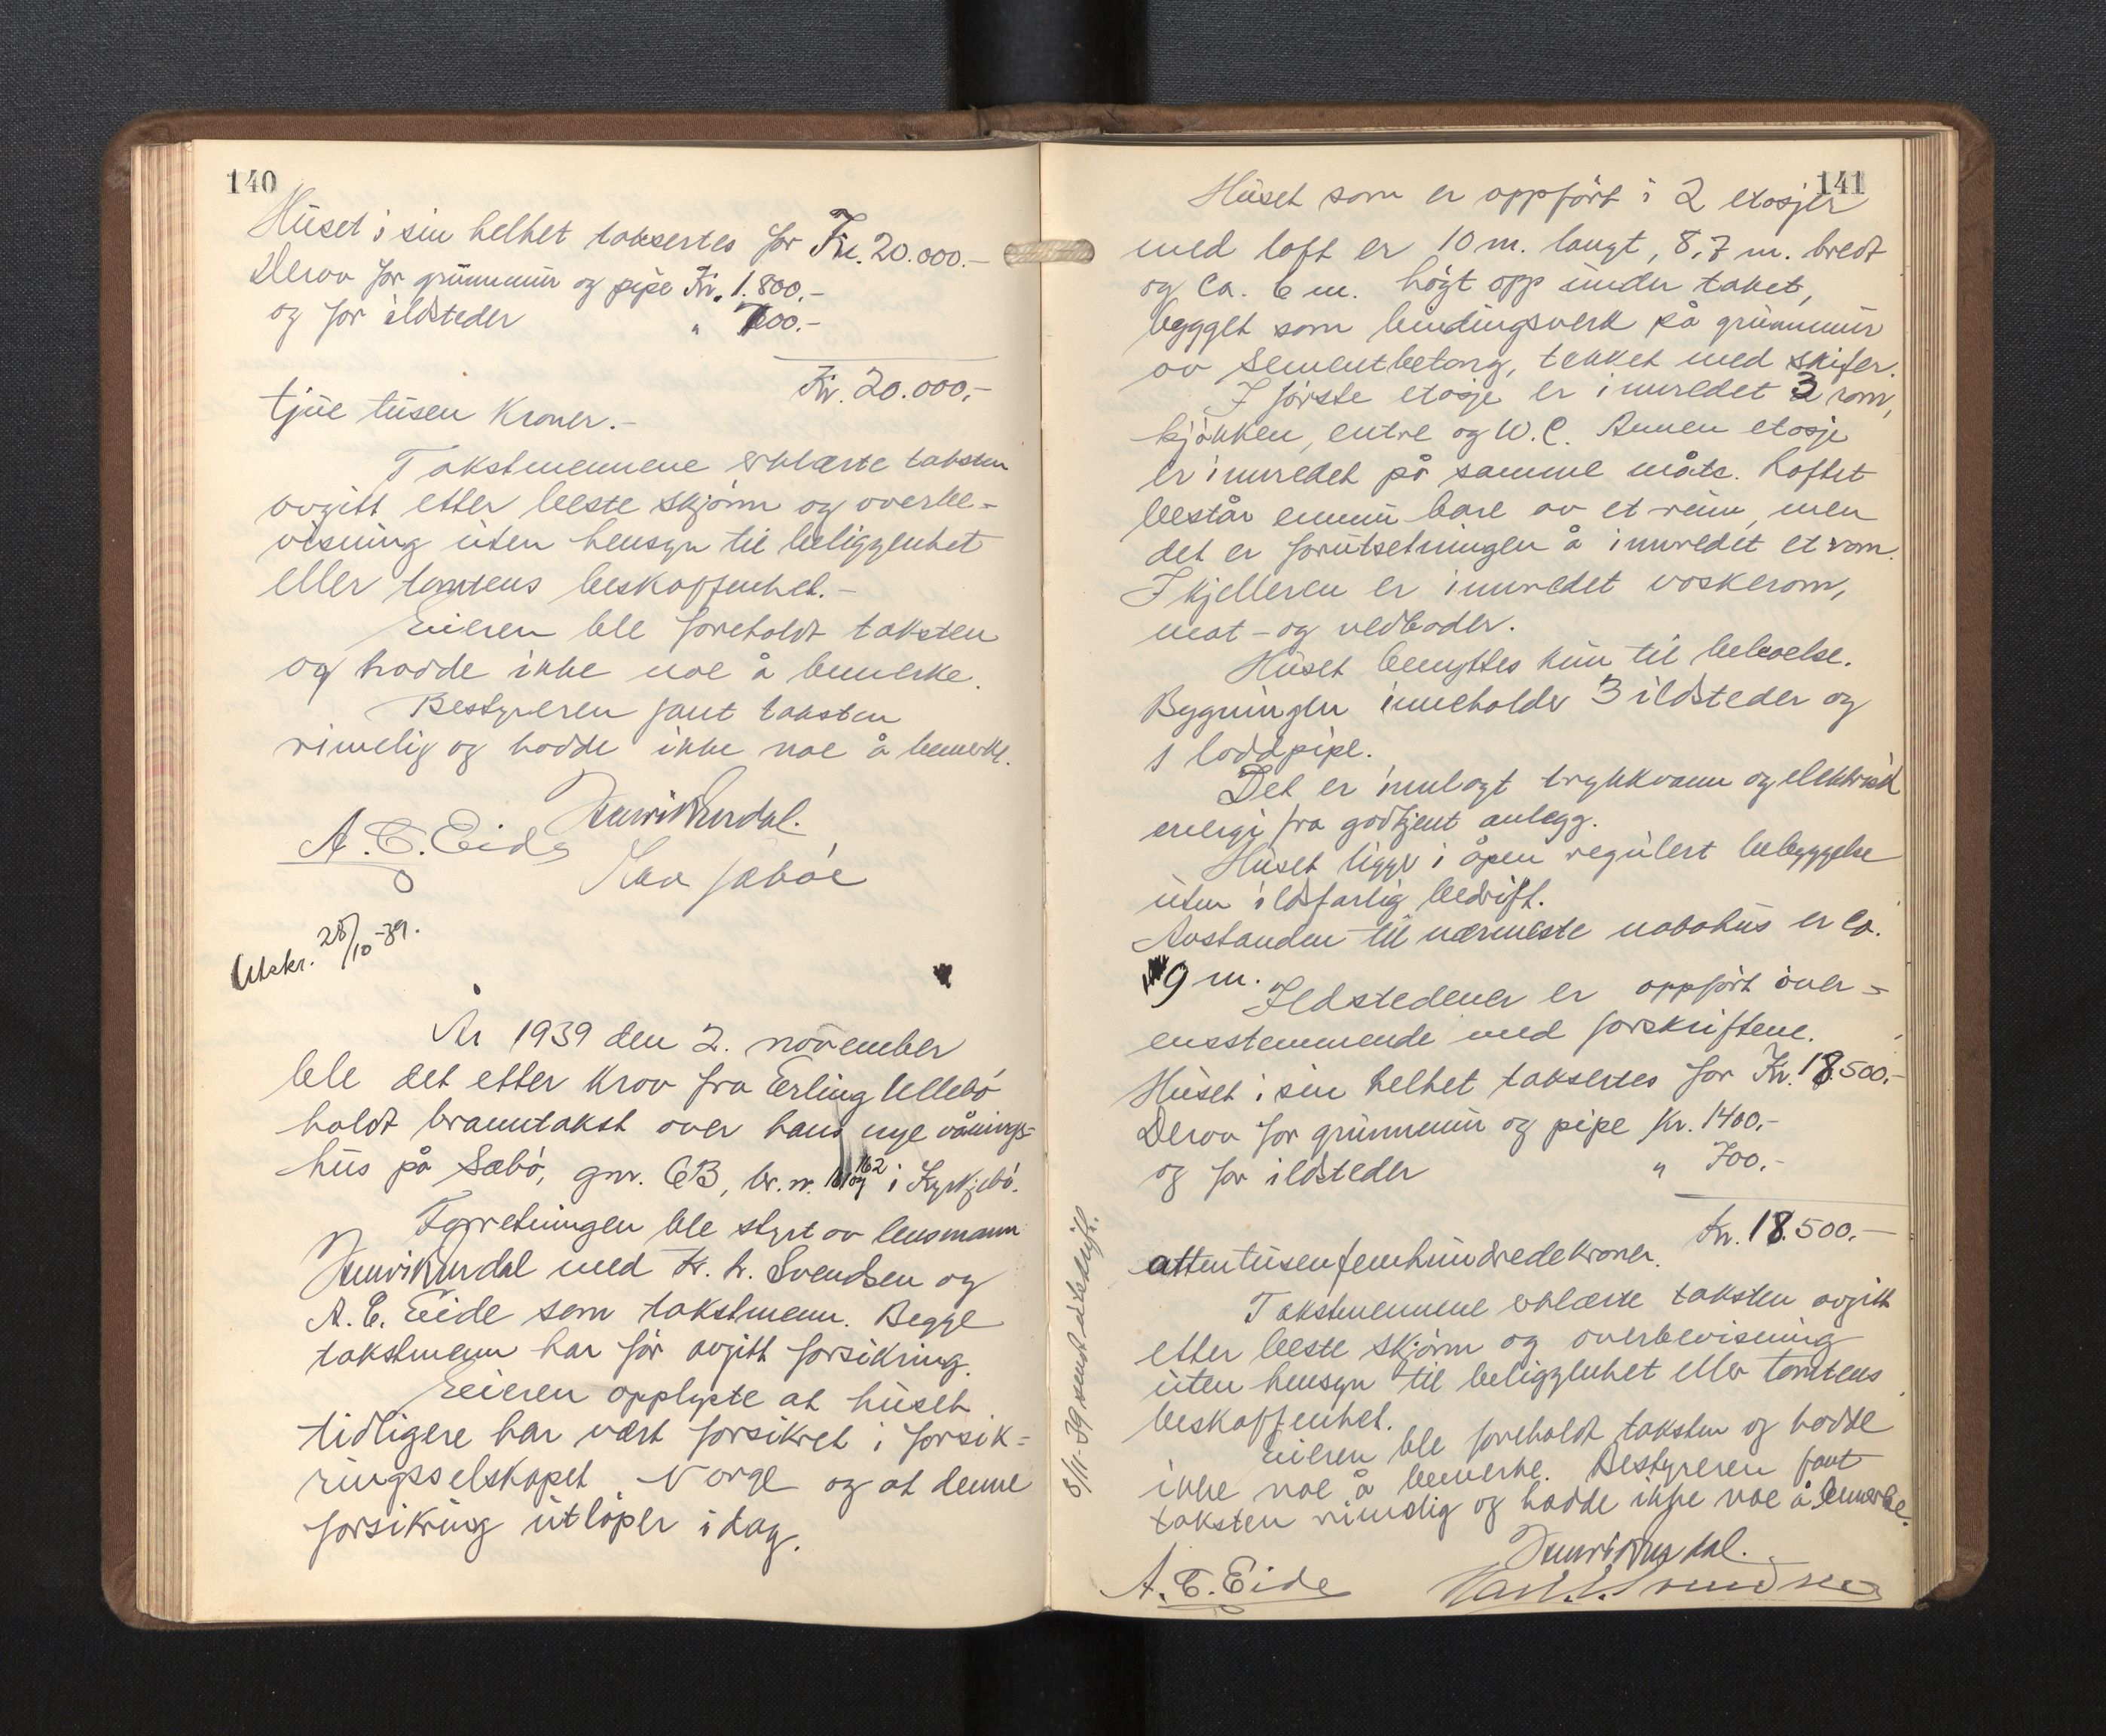 140
Huset i sin helhet taksertes for Kr. 20.000.-
Derav for grunnmur og pipe Kr. 1.800,-
og for ildsteder " 700.-
Kr. 20.000,-
tjue tusen kroner.-
Takstmennene erklærte taksten
avgitt etter beste skjønn og overbe-
visning uten hensyn til beliggenhet
eller tomtens beskaffenhet.-
Eieren ble foreholdt taksten
og hadde ikke noe å bemerke.
Bestyreren fant taksten
rimelig og hadde ikke noe å bemerke.
A. E. Eide
Utskr. 28/10-39.
År 1939 den 2. november
ble det etter krav fra Erling Ullebø
holdt branntakst over hans nye vånings-
hus på Sæbø, gnr. 63, br.nr. og 162 i Kyrkjebø.
Forretningen ble styrt av lensmann
med K. L. Svendsen og
A. E. Eide som takstmenn. Begge
takstmenn har før avgitt forsikring.
Eieren opplyste at huset
tidligere har vært forsikret i forsik-
ringsselskapet Norge og at denne
forsikring utløper i dag.
141
Huset som er oppført i 2 etasjer
med loft er 10 m. langt, 8,7 m. bredt
og ca. 6 m. høgt opp under taket,
bygget som bindingsverk på grunnmur
av sementbetong, tekket med skifer.
I første etasje er innredet 3 rom,
kjøkken, entre og W.C. Annen etasje
er innredet på samme måte. Loftet
består ennu bare av et rum, men
det er forutsetningen å innredet et rom.
I kjelleren er innredet vaskerom,
mat- og vedboder.
Huset benyttes kun til beboelse.
Bygningen inneholder 3 ildsteder og
1 loddpipe.
Det er innlagt trykkvann og elektrisk
energi fra godkjent anlegg.
Huset ligger i åpen regulert bebyggelse
uten ildsfarlig bedrift.
Avstanden til nærmeste nabohus er ca.
9 m.
Ildstedener er oppført over-
ensstemmende med forskriftene.
Huset i sin helhet taksertes for Kr. 18.500,-
Derav for grunnmur og pipe Kr. 1400,-
og for ildsteder " 700,-
Kr. 18.500,-
attentusenfemhundredekroner.
Takstmennene erklærte taksten avgitt
etter beste skjønn og overbevisning
uten hensyn til beliggenhet eller tomtens
beskaffenhet.
Eieren ble foreholdt taksten og hadde
ikke noe å bemerke. Bestyreren fant
taksten rimelig og hadde ikke noe å bemerke.
A. E. Eide
8/11-39 sendt utskrift.